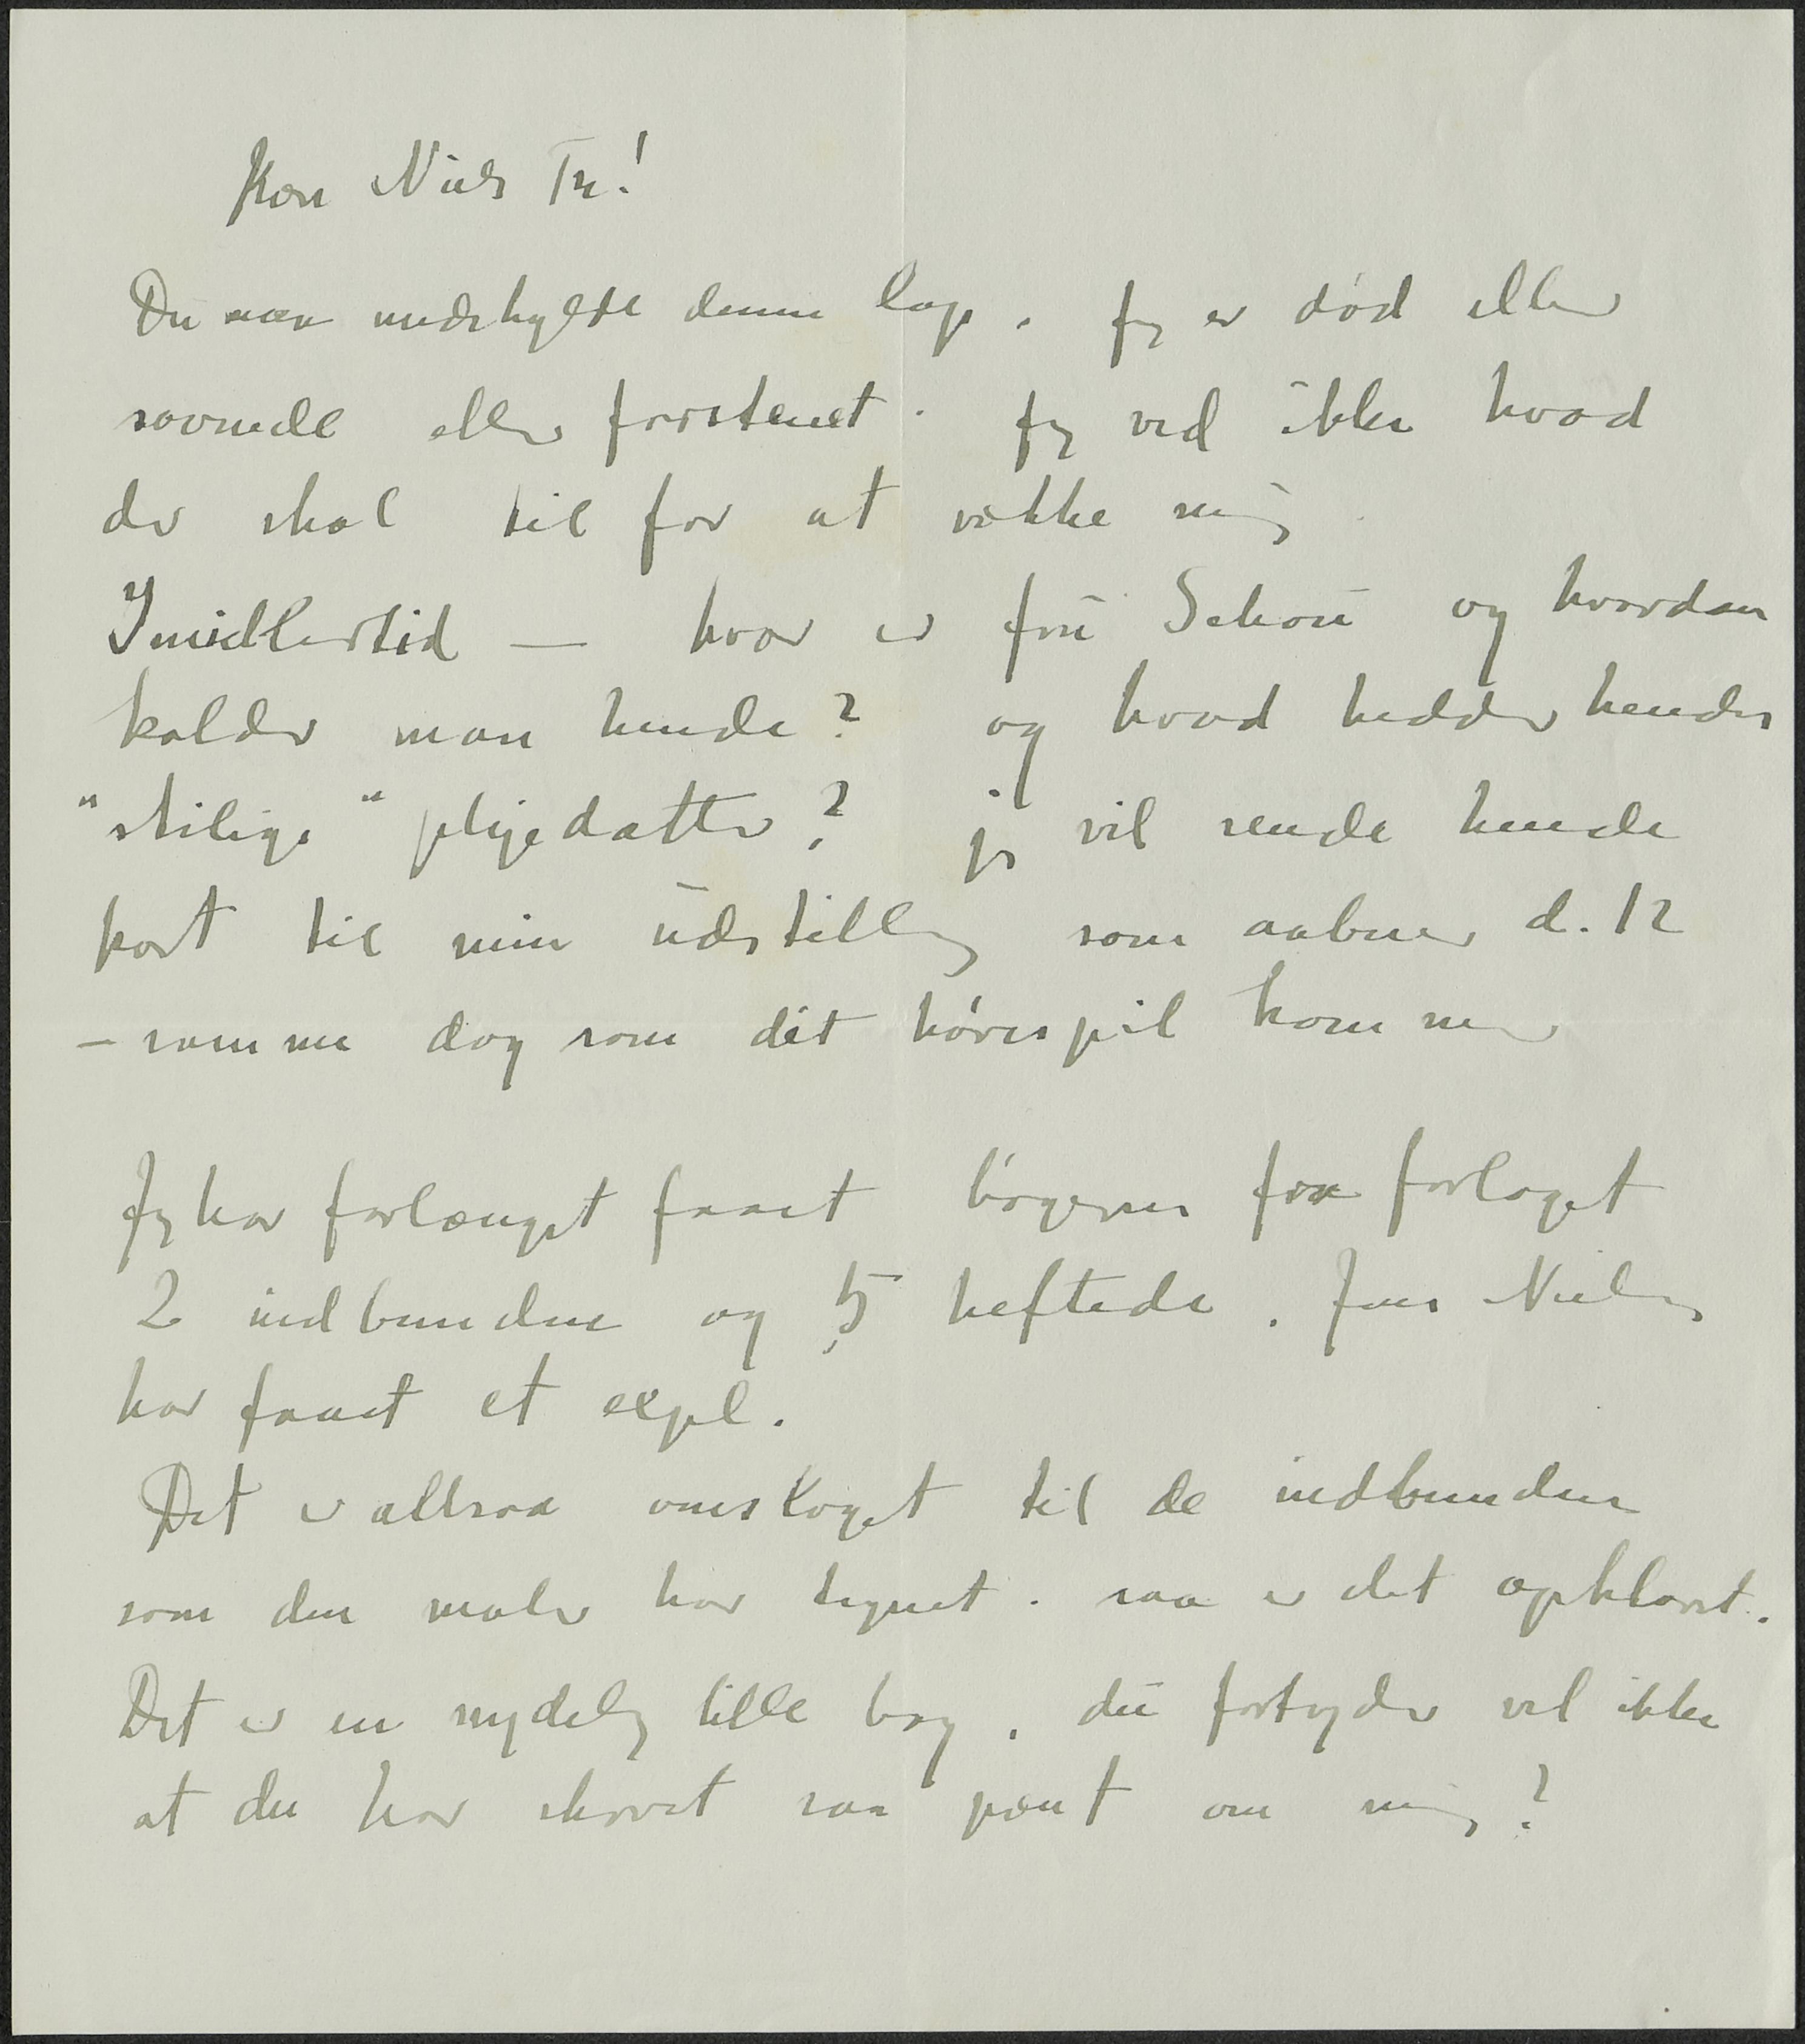 Kære Niels Th!
Du maa undskylde denne lap. Jeg er død eller
sovnede eller forstenet. Jeg ved ikke hvad
der skal til for at vække mig
Imidlertid — hvor er fru Schou og hvordan
kalder man hende? og hvad hedder hendes
"stilige" plejedatter? jeg vil sende hende
kort til min udstilling som aabner d. 12
— samme dag som dit hørespil kommer
Jeg har forlængst faaet bøgerne fra forlaget
2 indbundne og 5 heftede. Jens Nielsen
har faaet et expl.
Det er altsaa omslaget til de indbundne
som den maler har tegnet. saa er det opklaret.
Det er en nydelig lille bog. du fortryder vel ikke
at du har skrevet saa pænt om mig?